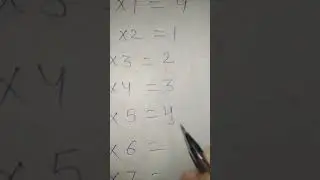 x1 = 4
x2 = 1
x3 = 2
x4 = 3
x5 = 4
x6 =
x7 =